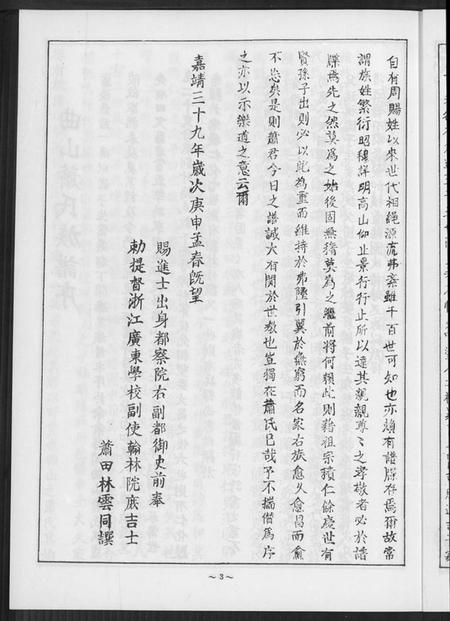 自有周賜姓以來世代相繩源流弗紊雖千百世可知也亦頼有譜牒存焉爾故常
謂族姓繁衍昭穆詳明高山仰止景行行止所以達其親親尊〻之孝敬者必於譜
牒焉先之然莫為之始後固無稽莫為之繼前將何頼此則藉祖宗積仁餘慶世有
賢孫子出則必以此為重而維持於弗墜引翼於無窮而名家右族愈久愈昌而愈
不忘矣是則蕭君今日之譜誠大有関於世教也豈獨在蕭氏已哉予不揣僭為序
之亦以示樂道之意云爾
嘉靖三十九年歲次庚申孟春既望
賜進士出身都察院右副都御史前奉
勅提督浙江廣東學校副使翰林院庶吉士
莆田林雲同譔
～3～